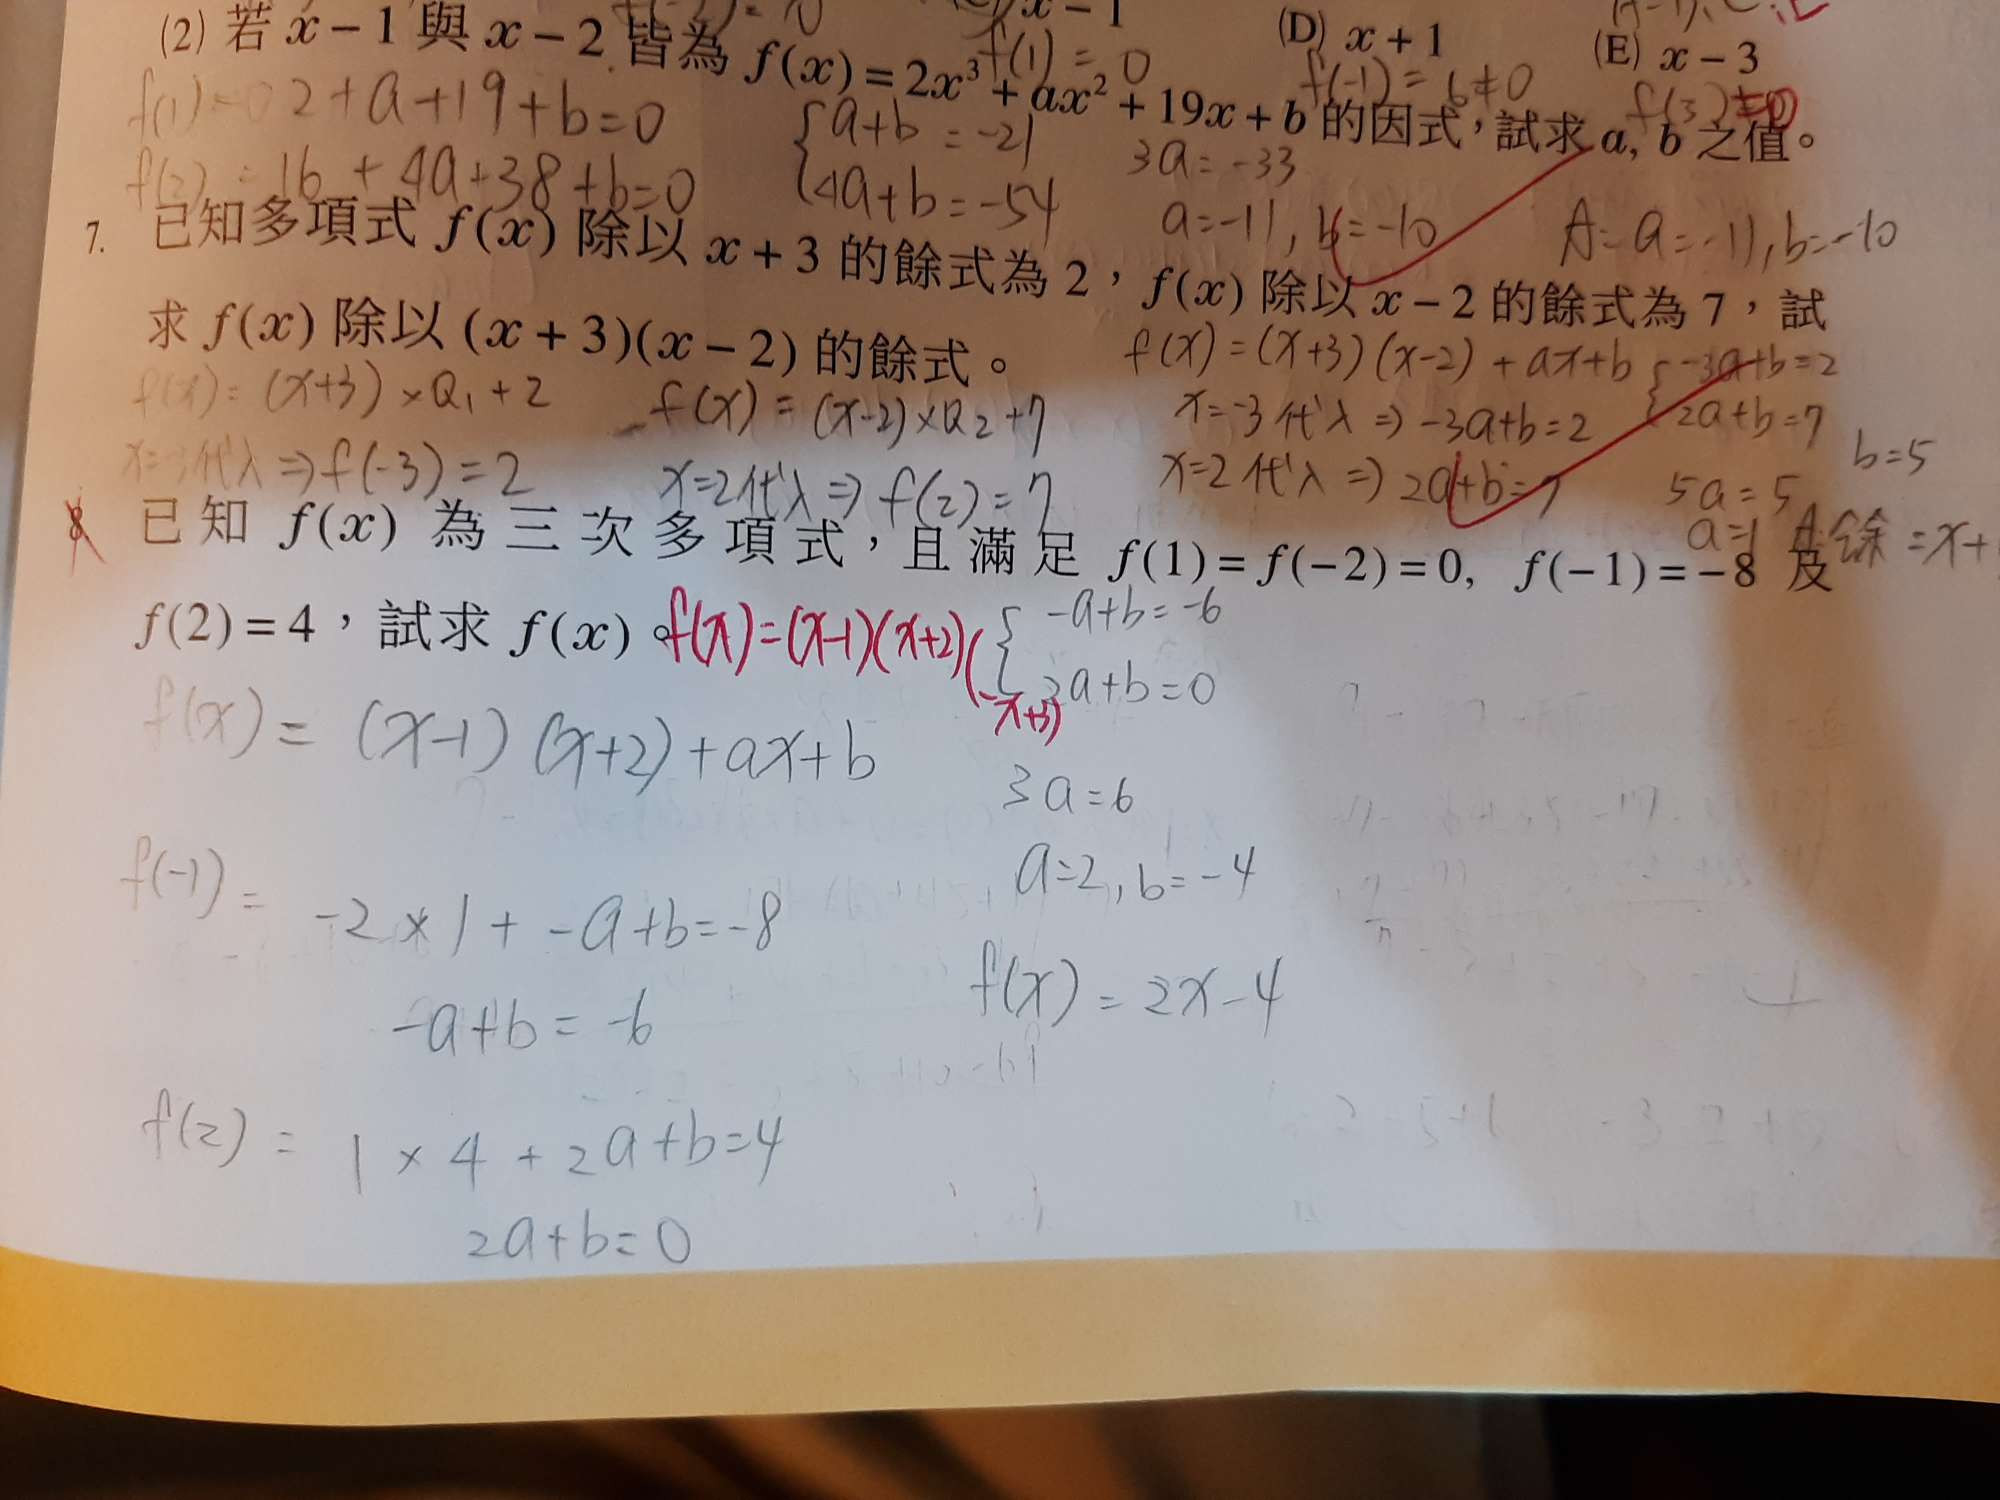 (C) x − 1
(D) x + 1
(E) x − 3
f(1) = 0
f(-1) = 6 ≠ 0
f(3) = 0
(2) 若 x − 1 與 x − 2 皆為 f(x) = 2x³ + ax² + 19x + b 的因式，試求 a, b 之值。
f(1) = 0 2+a+19+b=0
f(2) = 16 + 4a+38+b=0
{a+b = -21
4a+b = -54
3a = -33
a = -11, b = -10
A = a = -11, b = -10
7. 已知多項式 f(x) 除以 x + 3 的餘式為 2，f(x) 除以 x − 2 的餘式為 7，試
求 f(x) 除以 (x + 3)(x − 2) 的餘式。
f(x) = (x+3) × Q₁ + 2
x=-3代入 ⇒ f(-3) = 2
f(x) = (x-2) × Q₂ + 7
x=2代入 ⇒ f(2) = 7
f(x) = (x+3)(x-2) + ax+b
x=-3 代入 ⇒ -3a+b=2
x=2 代入 ⇒ 2a+b=7
{-3a+b=2
2a+b=7
5a = 5
a=1
b=5
A: 餘 = x+
8. 已知 f(x) 為三次多項式，且滿足 f(1) = f(−2) = 0, f(−1) = −8 及
f(2) = 4，試求 f(x)。
f(x)=(x-1)(x+2)(-x+3)
f(x) = (x-1)(x+2)+ax+b
f(-1) = -2×1+ -a+b=-8
-a+b = -6
f(2) = 1 × 4 + 2a+b=4
2a+b=0
{-a+b=-6
2a+b=0
3a=6
a=2, b=-4
f(x) = 2x-4